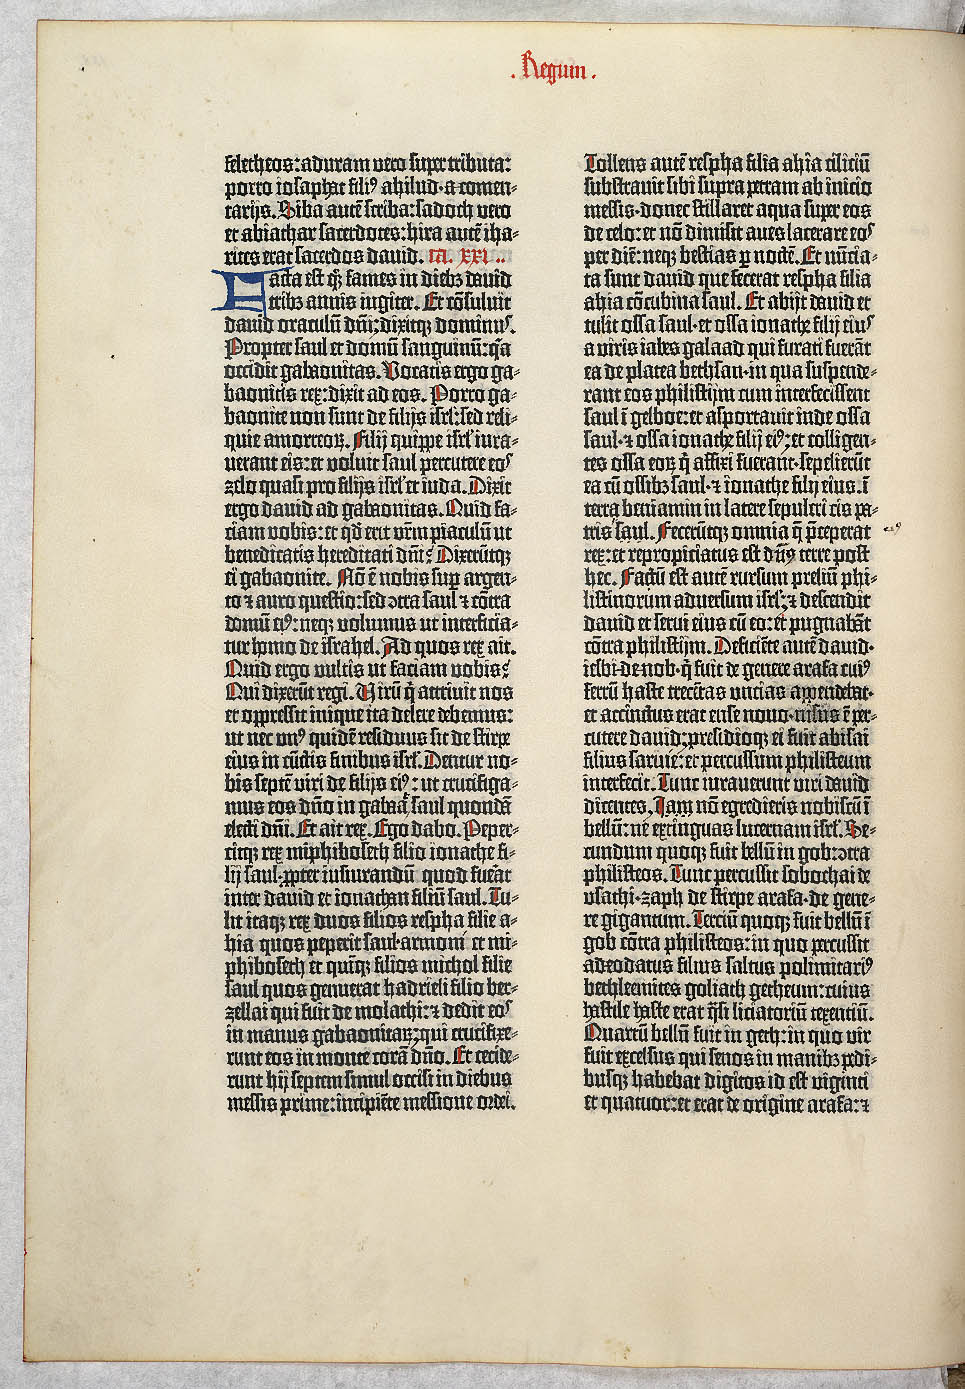 . Regum .
feletheos: aduram vero super tributa:
porro iosaphat filiꝰ ahilud·a comen-
tarijs. Siba autē scriba: sadoch vero
et abiathar sacerdotes: hira autē iha-
rites erat sacerdos david. ca. XXI..
Facta est qꝫ fames in diebꝫ david
tribꝫ annis iugiter. Et cōsuluit
david oraculū dñi; dixitqꝫ dominꝰ.
Propter saul et domū sanguinū: q̄a
occidit gabaonitas. Vocatis ergo ga-
baonitis rex: dixit ad eos. Porro ga-
baonite non sunt de filijs isrl̄: sed reli-
quie amorreoꝝ. Filij quippe isrl̄ iura-
uerant eis: et voluit saul percutere eoꝰ
zelo quasi pro filijs isrl̄ et iuda. Dixit
ergo david ad gabaonitas. Quid fa-
ciam vobis: et qd̄ erit vr̄m piaculū ut
benedicatis hereditati dñi? Dixerūtqꝫ
ei gabaonite. Nō ē nobis sup̄ argen-
to ⁊ auro questio: sed ↄtra saul ⁊ cōtra
domū eiꝰ: neqꝫ volumus ut interficia-
tur homo de israhel. Ad quos rex ait.
Quid ergo vultis ut faciam vobis?
Qui dixerūt regi. Virū q̄ attriuit nos
et oppressit inique ita delere debemus:
ut nec vnꝰ quidē residuus sit de stirpe
eius in cūctis finibus isrl̄. Dentur no-
bis septē viri de filijs eiꝰ: ut crucifiga-
mus eos dño in gabaa saul quondā
electi dñi. Et ait rex. Ego dabo. Peper-
citqꝫ rex miphiboseth filio ionathe fi-
lij saul·ꝓpter iusiurandū quod fuerat
inter david et ionathan filiū saul. Tu-
lit itaqꝫ rex duos filios respha filie a-
hia quos peperit saul·armoni et mi-
phiboseth et quīqꝫ filios michol filie
saul quos genuerat hadrieli filio ber-
zellai qui fuit de molathi: ⁊ dedit eoꝰ
in manus gabaonitaꝝ; qui crucifixe-
runt eos in monte corā dño. Et cecide-
runt hij septem simul occisi in diebus
messis prime: incipiēte messione ordei.
Tollens autē respha filia ahia ciliciū
substravit sibi supra petram ab inicio
messis·donec stillaret aqua super eos
de celo: et nō dimisit aves lacerare eoꝰ
per diē: neqꝫ bestias ꝑ noctē. Et nūcia-
ta sunt david que fecerat respha filia
ahia cōcubina saul. Et abijt david et
tulit ossa saul·et ossa ionathe filij eiuꝰ
a viris iabes galaad qui furati fuerāt
ea de platea bethsan·in qua suspende-
rant eos philistijm cum interfecissent
saul ī gelboe: et asportavit inde ossa
saul·⁊ ossa ionathe filij eiꝰ: et colligen-
tes ossa eoꝝ q̄ affixi fuerant·sepelierūt
ea cū ossibꝫ saul·⁊ ionathe filij eius·ī
terra beniamin in latere sepulcri cis pa-
tris saul. Fecerūtqꝫ omnia q̄ p̄ceperat eiꝰ
rex: et repropiciatus est dñs terre post
hec. Factū est autē rursum preliū phi-
listinorum adversum isrl̄; ⁊ descendit
david et servi eius cū eo: et pugnabāt
cōtra philistijm. Deficiēte autē david·
iesbi·de nob·q̄ fuit de genere arafa cuiꝰ
ferrū haste trecētas vncias appendebat·
et accinctus erat ense novo·nisus ē per-
cutere david; presidioqꝫ ei fuit abisai
filius sarvie: et percussum philisteum
interfecit. Tunc iuraverunt viri david
dicentes. Jam nō egredieris nobiscū ī
bellū: ne extinguas lucernam isrl̄. Se-
cundum quoqꝫ fuit bellū in gob ↄtra
philisteos. Tunc percussit sobochai de
vsathi·zaph de stirpe arafa·de gene-
re gigantum. Terciū quoqꝫ fuit bellū ī
gob cōtra philisteos: in quo percussit
adeodatus filius saltus polimitariꝰ
bethleemites goliath getheum: cuius
hastile haste erat q̄si liciatoriū texentiū.
Quartū bellū fuit in geth: in quo vir
fuit excelsus qui senos in manibꝫ pedi-
busqꝫ habebat digitos id est viginti
et quatuor: et erat de origine arafa: ⁊